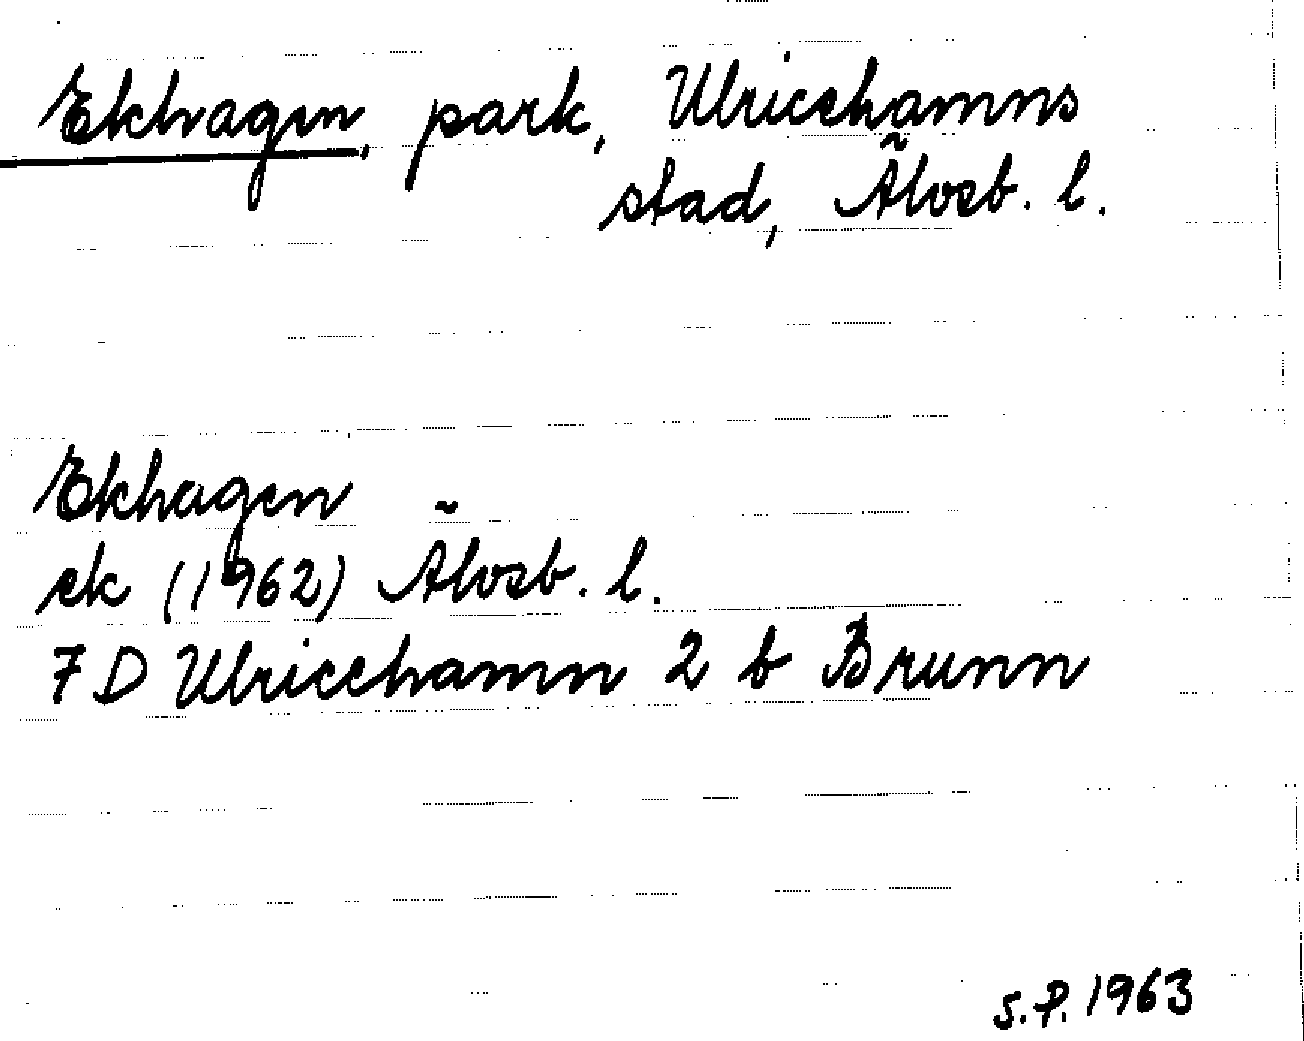 Ekhagen, park, Ulricehamns
stad, Älvsb. l.
Ekhagen
ek (1962) Älvsb. l.
7 D Ulricehamn 2 b Brunn
S.P. 1963